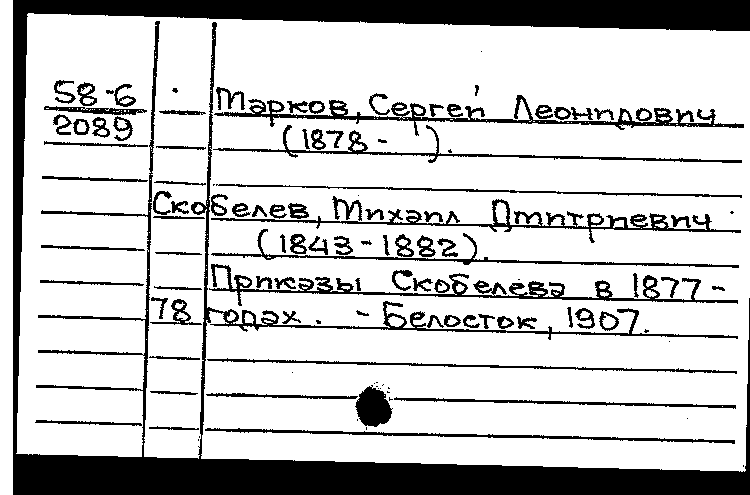 58-6
2089
Марков, Сергей Леонидович
(1878- ).
Скобелев, Михаил Дмитриевич
(1843-1882).
Приказы Скобелева в 1877-
78 годах. - Белосток, 1907.